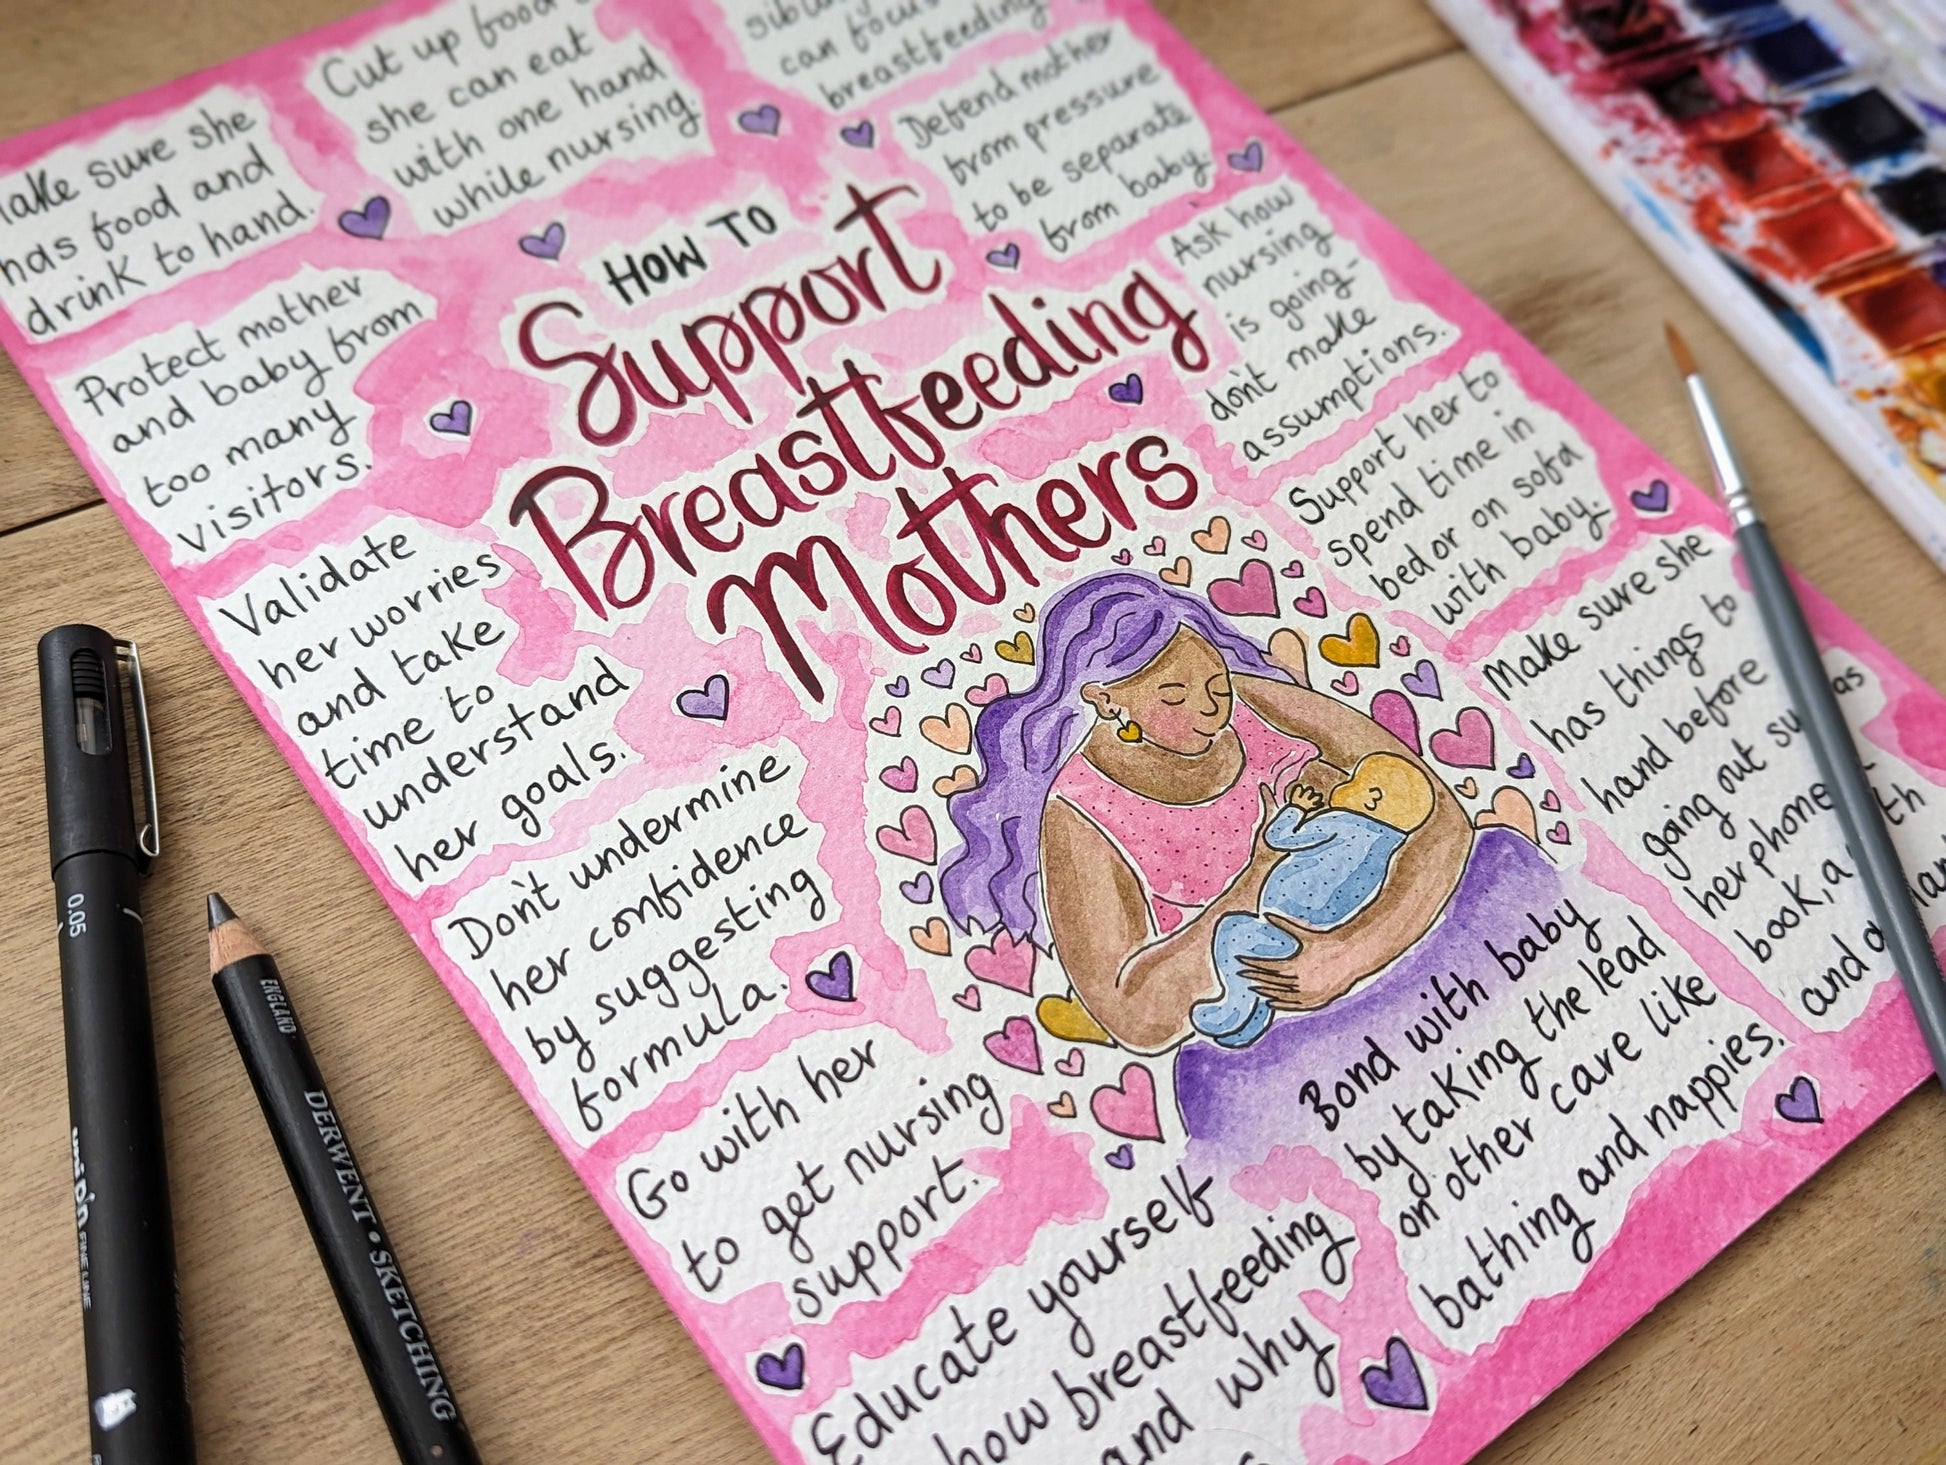 Make sure she
has food and
drink to hand.
Cut up food
she can eat
with one hand
while nursing.
can focus
breastfeeding
Defend mother
from pressure
to be separate
from baby.
HOW TO
Support
Breastfeeding
Mothers
Protect mother
and baby from
too many
visitors.
Ask how
nursing
is going-
don't make
assumptions.
Validate
her worries
and take
time to
understand
her goals.
Support her to
spend time in
bed or on sofa
with baby.
Don't undermine
her confidence
by suggesting
formula.
Make sure she
has things to
hand before
going out
her phone
book, a
and a
Go with her
to get nursing
support.
Bond with baby
by taking the lead
on other care like
bathing and nappies.
Educate yourself
how breastfeeding
and why
0.05
uni pin FINE LINE
ENGLAND
DERWENT • SKETCHING